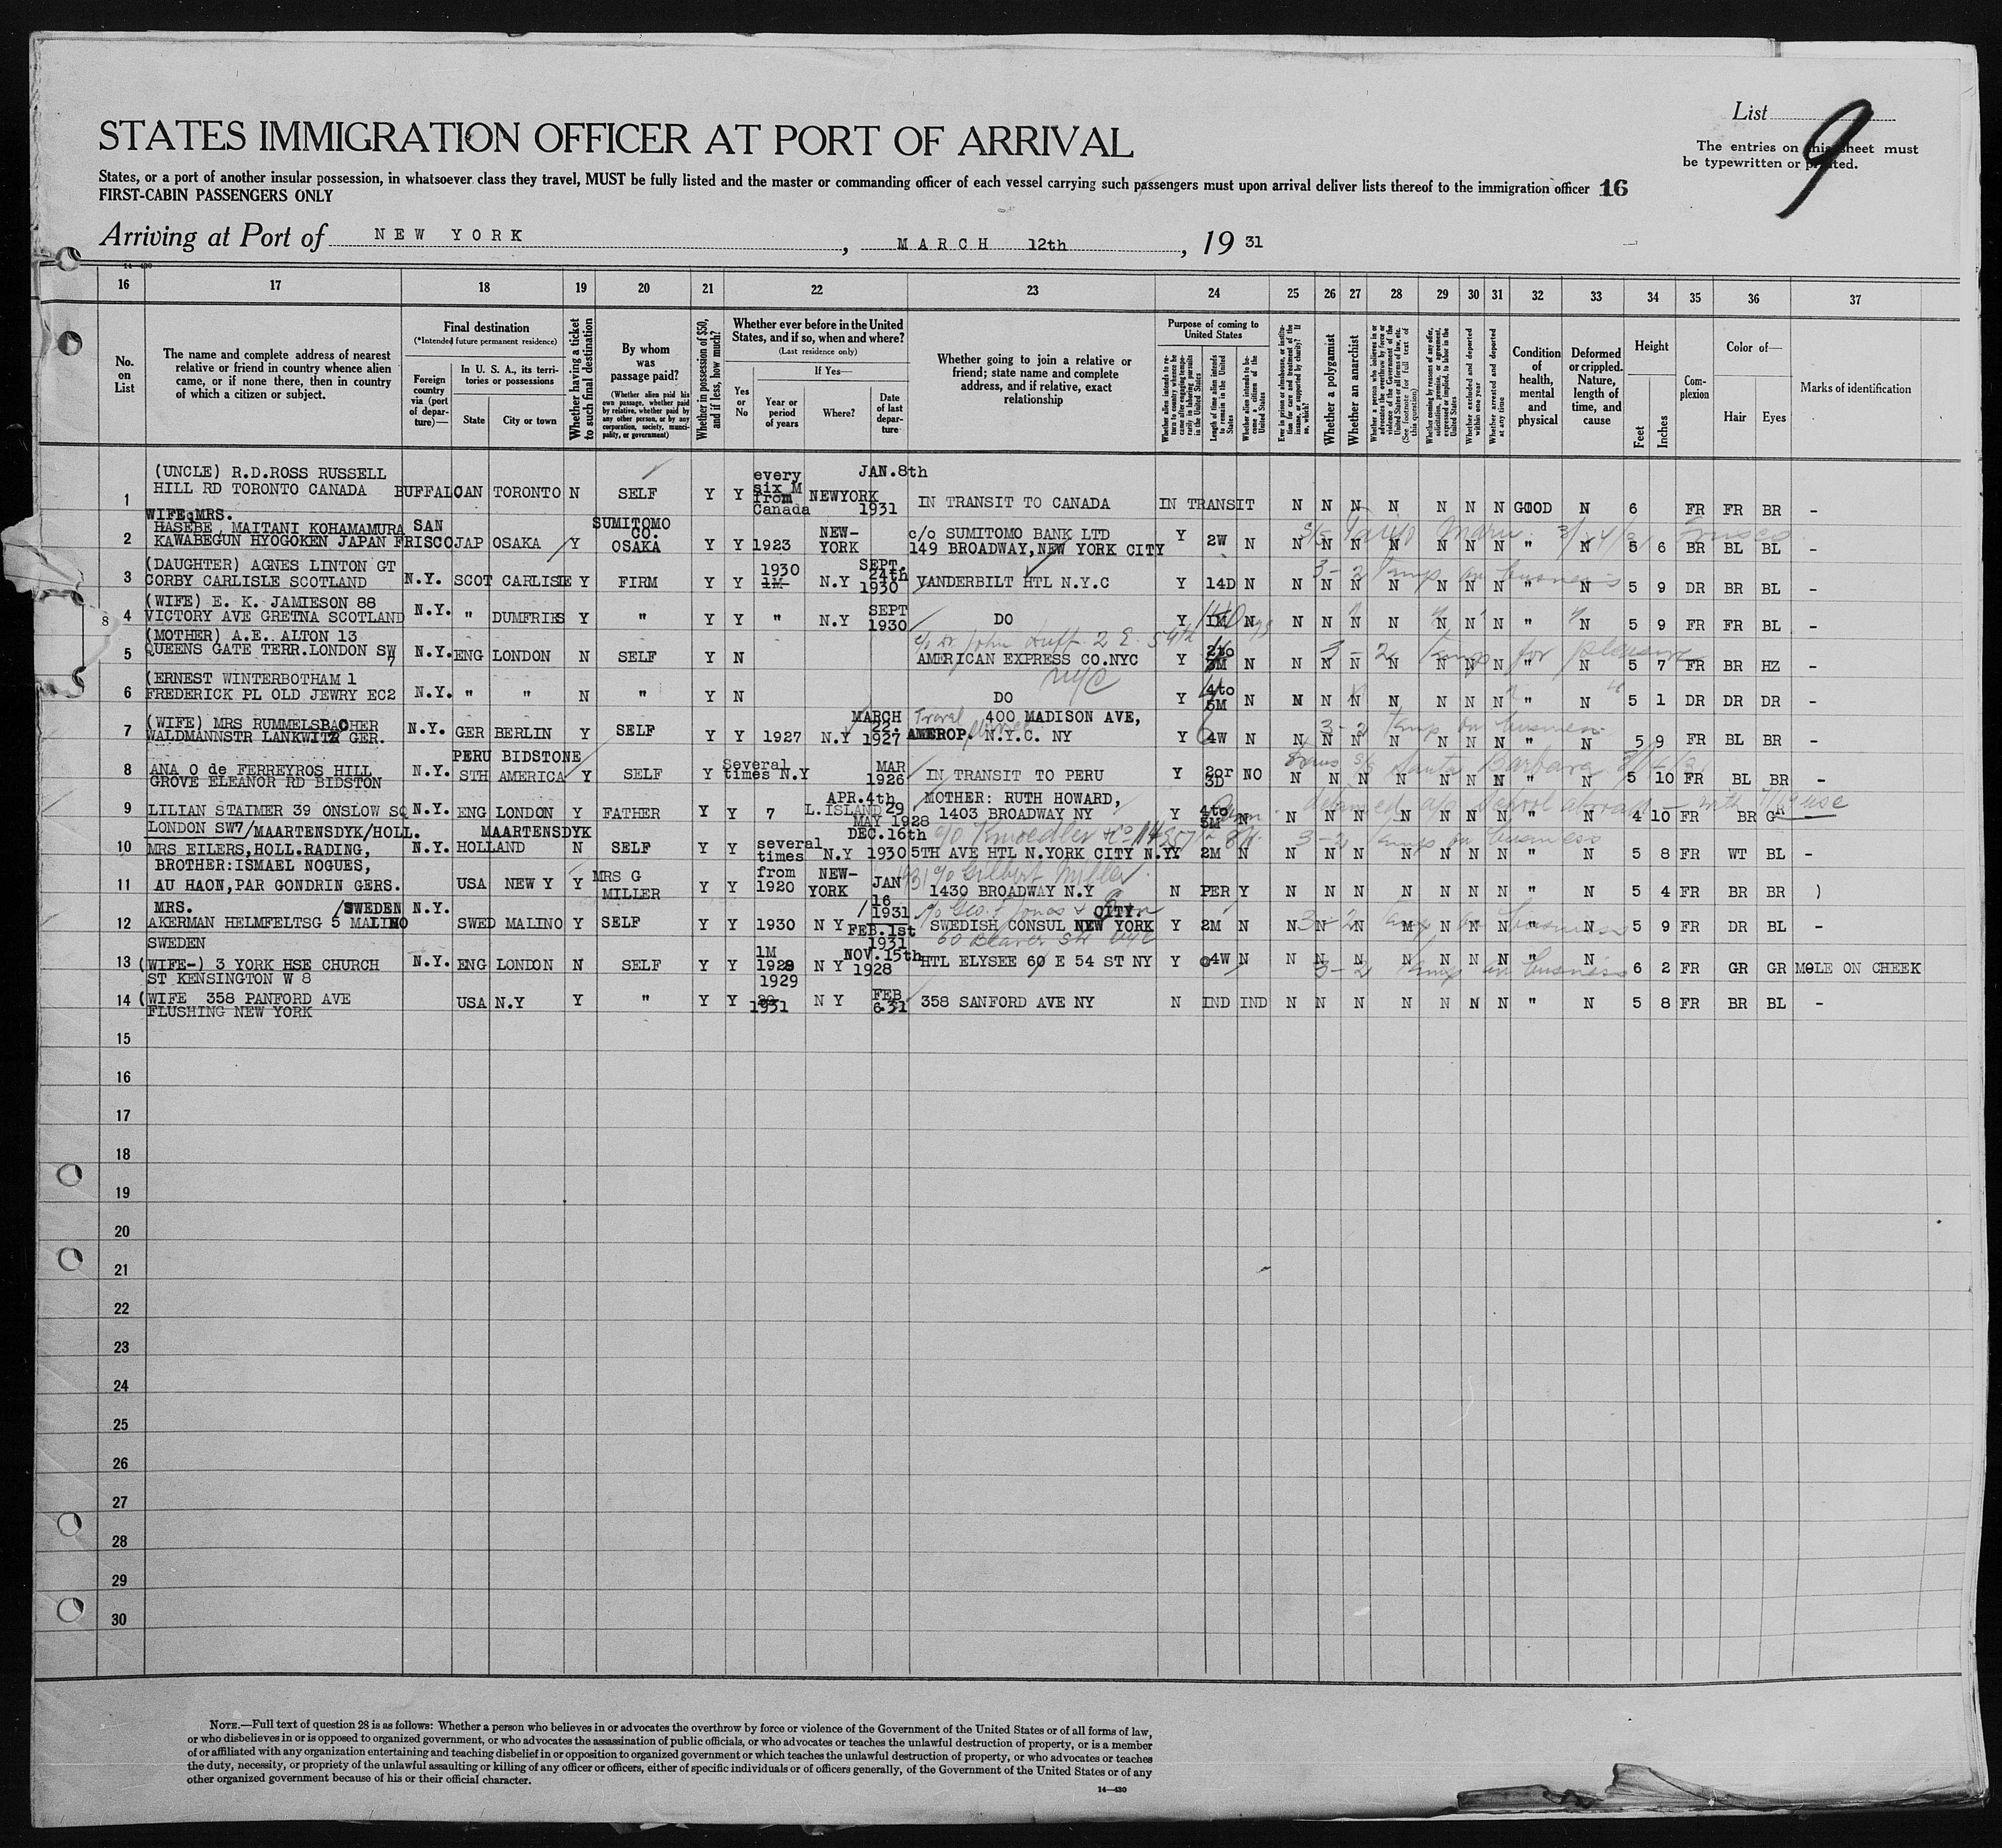 List 9
STATES IMMIGRATION OFFICER AT PORT OF ARRIVAL
The entries on this sheet must
be typewritten or printed.
States, or a port of another insular possession, in whatsoever class they travel, MUST be fully listed and the master or commanding officer of each vessel carrying such passengers must upon arrival deliver lists thereof to the immigration officer 16
FIRST-CABIN PASSENGERS ONLY
Arriving at Port of NEW YORK, MARCH 12th, 19 31
14-430
16 17 18 19 20 21 22 23 24 25 26 27 28 29 30 31 32 33 34 35 36 37
No. on List
The name and complete address of nearest relative or friend in country whence alien came, or if none there, then in country of which a citizen or subject.
Final destination
(*Intended future permanent residence)
Foreign country via (port of departure)—
In U. S. A., its territories or possessions
State
City or town
Whether having a ticket to such final destination
By whom was passage paid?
(Whether alien paid his own passage, whether paid by relative, whether paid by any other person, or by any corporation, society, municipality, or government)
Whether in possession of $50, and if less, how much?
Whether ever before in the United States, and if so, when and where?
(Last residence only)
Yes or No
If Yes—
Year or period of years
Where?
Date of last departure
Whether going to join a relative or friend; state name and complete address, and if relative, exact relationship
Purpose of coming to United States
Whether alien intends to return to country whence he came after engaging temporarily in laboring pursuits in the United States
Length of time alien intends to remain in the United States
Whether alien intends to become a citizen of the United States
Ever in prison or almshouse, or institution for care and treatment of the insane, or supported by charity? If so, which?
Whether a polygamist
Whether an anarchist
Whether a person who believes in or advocates the overthrow by force or violence of the Government of the United States or of all forms of law, etc. (See footnote for full text of this question)
Whether coming by reasons of any offer, solicitation, promise, or agreement, expressed or implied, to labor in the United States
Whether excluded and deported within one year
Whether arrested and deported at any time
Condition of health, mental and physical
Deformed or crippled. Nature, length of time, and cause
Height
Feet
Inches
Complexion
Color of—
Hair
Eyes
Marks of identification
1 (UNCLE) R.D.ROSS RUSSELL HILL RD TORONTO CANADA BUFFALO CAN TORONTO N SELF Y Y every six M from Canada NEWYORK JAN.8th 1931 IN TRANSIT TO CANADA IN TRANSIT N N N N N N N GOOD N 6 FR FR BR -
2 WIFE MRS. HASEBE, MAITANI KOHAMAMURA KAWABEGUN HYOGOKEN JAPAN SAN FRISCO JAP OSAKA Y SUMITOMO CO. OSAKA Y Y 1923 NEW-YORK c/o SUMITOMO BANK LTD 149 BROADWAY, NEW YORK CITY Y 2W N N N N N N N N " N 5 6 BR BL BL -
S/S Taiyo Maru 3/ Frisco
3 (DAUGHTER) AGNES LINTON GT CORBY CARLISLE SCOTLAND N.Y. SCOT CARLISLE Y FIRM Y Y 1930 1M N.Y SEPT. 24th 1930 VANDERBILT HTL N.Y.C Y 14D N N N N N N N N " N 5 9 DR BR BL -
3-2 temp on business
4 (WIFE) E. K. JAMIESON 88 VICTORY AVE GRETNA SCOTLAND N.Y. " DUMFRIES Y " Y Y " N.Y SEPT 1930 DO Y 1M N N N N N N N N " N 5 9 FR FR BL -
8
5 (MOTHER) A.E. ALTON 13 QUEENS GATE TERR.LONDON SW 7 N.Y. ENG LONDON N SELF Y N AMERICAN EXPRESS CO.NYC Y 2to 3M N N N N N N N N " N 5 7 FR BR HZ -
c/o Dr John Luft 2 E. 54th NYC
3-2 temp for pleasure
6 (ERNEST WINTERBOTHAM 1 FREDERICK PL OLD JEWRY EC2 N.Y. " " N " Y N DO Y 4to 5M N N N N N N N N " N 5 1 DR DR DR -
7 (WIFE) MRS RUMMELSBACHER WALDMANNSTR LANKWITZ GER. N.Y. GER BERLIN Y SELF Y Y 1927 N.Y MARCH 22. 1927 400 MADISON AVE, AMEROP. N.Y.C. NY Y 4W N N N N N N N N " N 5 9 FR BL BR -
Travel
3-2 temp on business
8 ANA O de FERREYROS HILL GROVE ELEANOR RD BIDSTON N.Y. PERU BIDSTONE STH AMERICA Y SELF Y Several times N.Y MAR 1926 IN TRANSIT TO PERU Y 2or 3D NO N N N N N N N " N 5 10 FR BL BR -
Trans S/S Santa Barbara
9 LILIAN STAIMER 39 ONSLOW SQ LONDON SW7 N.Y. ENG LONDON Y FATHER Y Y 7 L.ISLAND APR.4th 29 MAY 1928 MOTHER: RUTH HOWARD, 1403 BROADWAY NY Y 4to 5M N N N N N N N N " N 4 10 FR BR GR -
10 /MAARTENSDYK/HOLL. MRS EILERS,HOLL.RADING, N.Y. MAARTENSDYK HOLLAND N SELF Y Y several times N.Y DEC.16th 1930 5TH AVE HTL N.YORK CITY N.Y. Y 2M N N N N N N N N " N 5 8 FR WT BL -
c/o Knoedler & Co 14 E 57th St.
3-2 temp on business
11 BROTHER:ISMAEL NOGUES, AU HAON,PAR GONDRIN GERS. USA NEW Y Y MRS G MILLER Y Y from 1920 NEW-YORK JAN 16 1931 1430 BROADWAY N.Y N PER Y N N N N N N N " N 5 4 FR BR BR )
c/o Gilbert Miller
12 MRS. /SWEDEN AKERMAN HELMFELTSG 5 MALMO SWEDEN N.Y. SWED MALINO Y SELF Y Y 1930 N Y FEB.1st 1931 SWEDISH CONSUL NEW YORK CITY. Y 2M N N N N M N N N " N 5 9 FR DR BL -
c/o Geo. S. Jonas
60 Beaver St NYC
3-2 temp on business
13 (WIFE-) 3 YORK HSE CHURCH ST KENSINGTON W 8 N.Y. ENG LONDON N SELF Y Y 1M 1928 1929 N Y NOV.15th 1928 HTL ELYSEE 60 E 54 ST NY Y 4W N N N N N N N N " N 6 2 FR GR GR MOLE ON CHEEK
3-2 temp on business
14 (WIFE 358 PANFORD AVE FLUSHING NEW YORK USA N.Y Y " Y Y 1931 N Y FEB 6.31 358 SANFORD AVE NY N IND IND N N N N N N N " N 5 8 FR BR BL -
15
16
17
18
19
20
21
22
23
24
25
26
27
28
29
30
NOTE.—Full text of question 28 is as follows: Whether a person who believes in or advocates the overthrow by force or violence of the Government of the United States or of all forms of law,
or who disbelieves in or is opposed to organized government, or who advocates the assassination of public officials, or who advocates or teaches the unlawful destruction of property, or is a member
of or affiliated with any organization entertaining and teaching disbelief in or opposition to organized government or which teaches the unlawful destruction of property, or who advocates or teaches
the duty, necessity, or propriety of the unlawful assaulting or killing of any officer or officers, either of specific individuals or of officers generally, of the Government of the United States or of any
other organized government because of his or their official character.
14-430